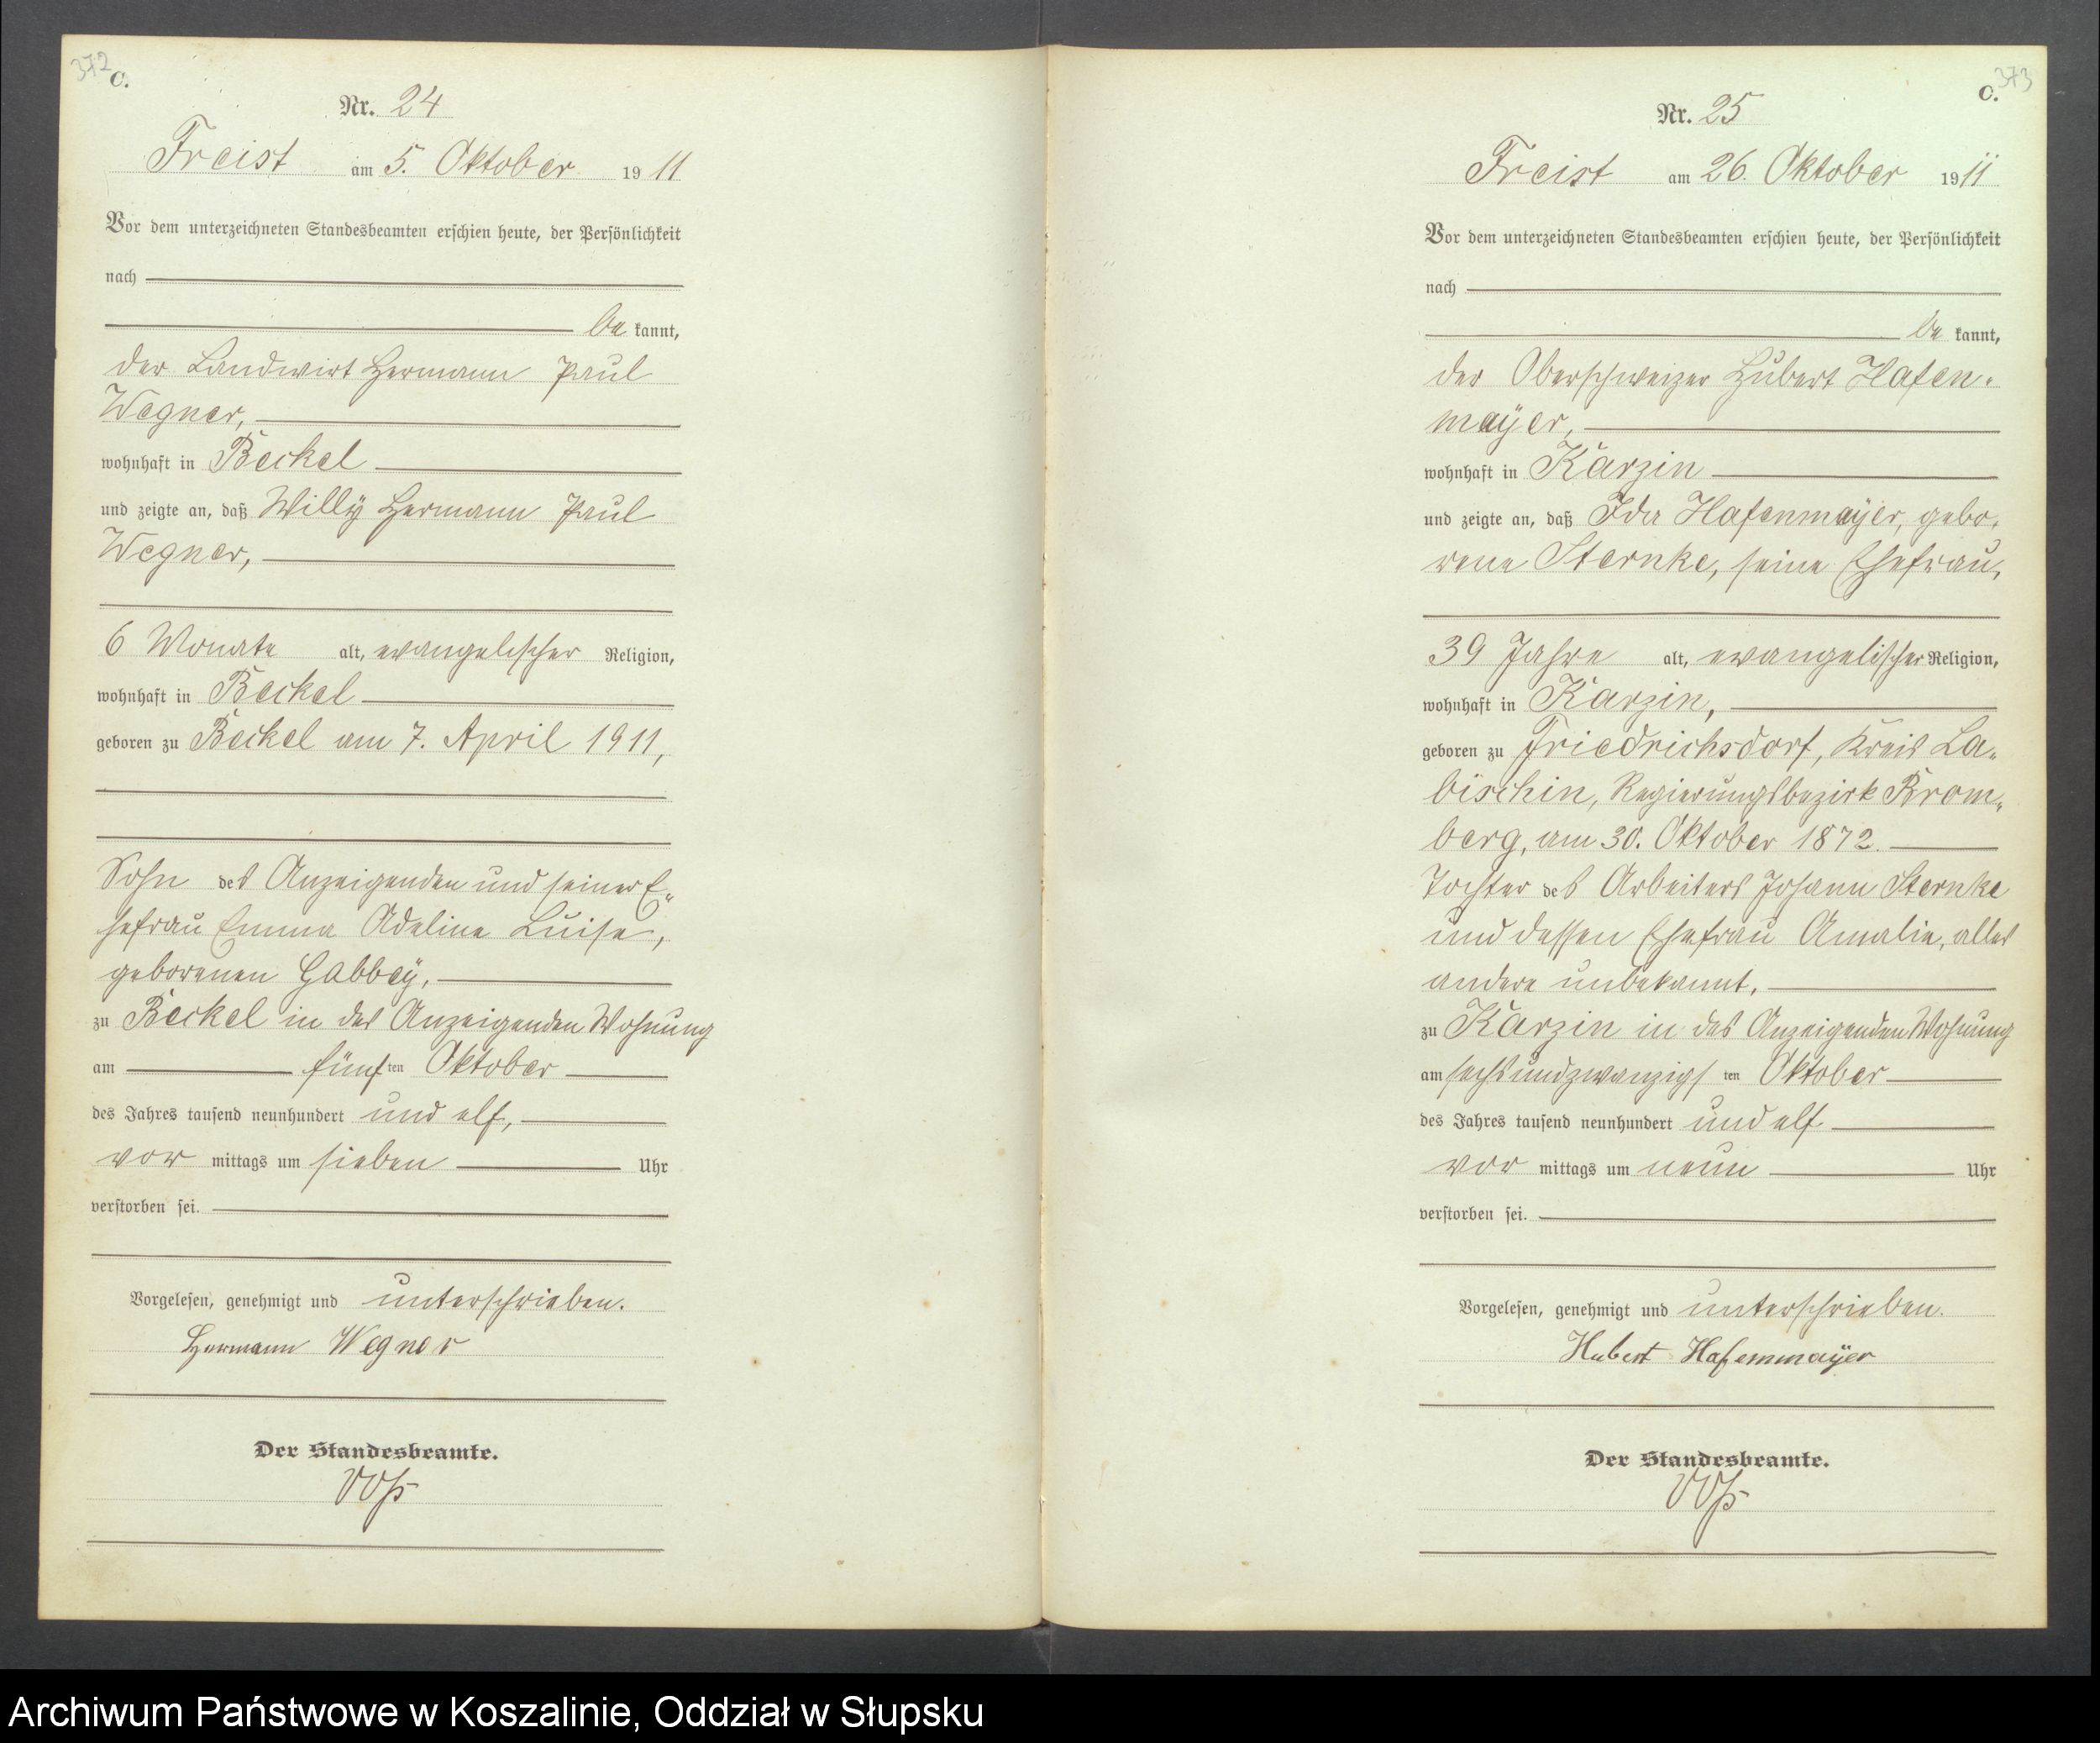 372
C.
Nr. 24
Freist am 5. Oktober 1911
Vor dem unterzeichneten Standesbeamten erschien heute, der Persönlichkeit
nach
be kannt,
der Landwirt Hermann Paul
Wegner,
wohnhaft in Beckel
und zeigte an, daß Willÿ Hermann Paul
Wegner,
6 Monate alt, evangelischer Religion,
wohnhaft in Beckel
geboren zu Beckel am 7. April 1911,
Sohn des Anzeigenden und seiner E„
hefrau Emma Adeline Luise,
geborenen Gabbeÿ,
zu Beckel in des Anzeigenden Wohnung
am fünften Oktober
des Jahres tausend neunhundert und elf,
vor mittags um sieben Uhr
verstorben sei.
Vorgelesen, genehmigt und unterschrieben.
Hermann Wegner
Der Standesbeamte.
Voß
373
C.
Nr. 25
Freist am 26. Oktober 1911
Vor dem unterzeichneten Standesbeamten erschien heute, der Persönlichkeit
nach
be kannt,
der Oberschweizer Hubert Hafen„
maÿer,
wohnhaft in Karzin
und zeigte an, daß Ida Hafenmaÿer, gebo„
rene Sternke, seine Ehefrau,
39 Jahre alt, evangelischer Religion,
wohnhaft in Karzin,
geboren zu Friedrichsdorf, Kreis La„
bischin, Regierungsbezirk Brom„
berg, am 30. Oktober 1872.
Tochter des Arbeiters Johann Sternke
und dessen Ehefrau Amalie, alles
andere unbekannt,
zu Karzin in des Anzeigenden Wohnung
am sechsundzwanzigsten Oktober
des Jahres tausend neunhundert und elf
vor mittags um neun Uhr
verstorben sei.
Vorgelesen, genehmigt und unterschrieben.
Hubert Hafenmaÿer
Der Standesbeamte.
Voß
Archiwum Państwowe w Koszalinie, Oddział w Słupsku